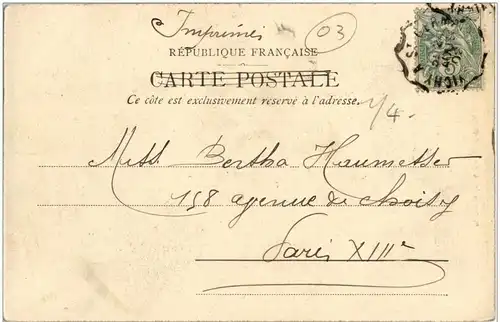 Imprimés
03
RÉPUBLIQUE FRANÇAISE
CARTE POSTALE
Ce côté est exclusivement réservé à l'adresse.
1/4.
Miss. Bertha Haumesser
158 avenue de choisy
Paris XIIIe